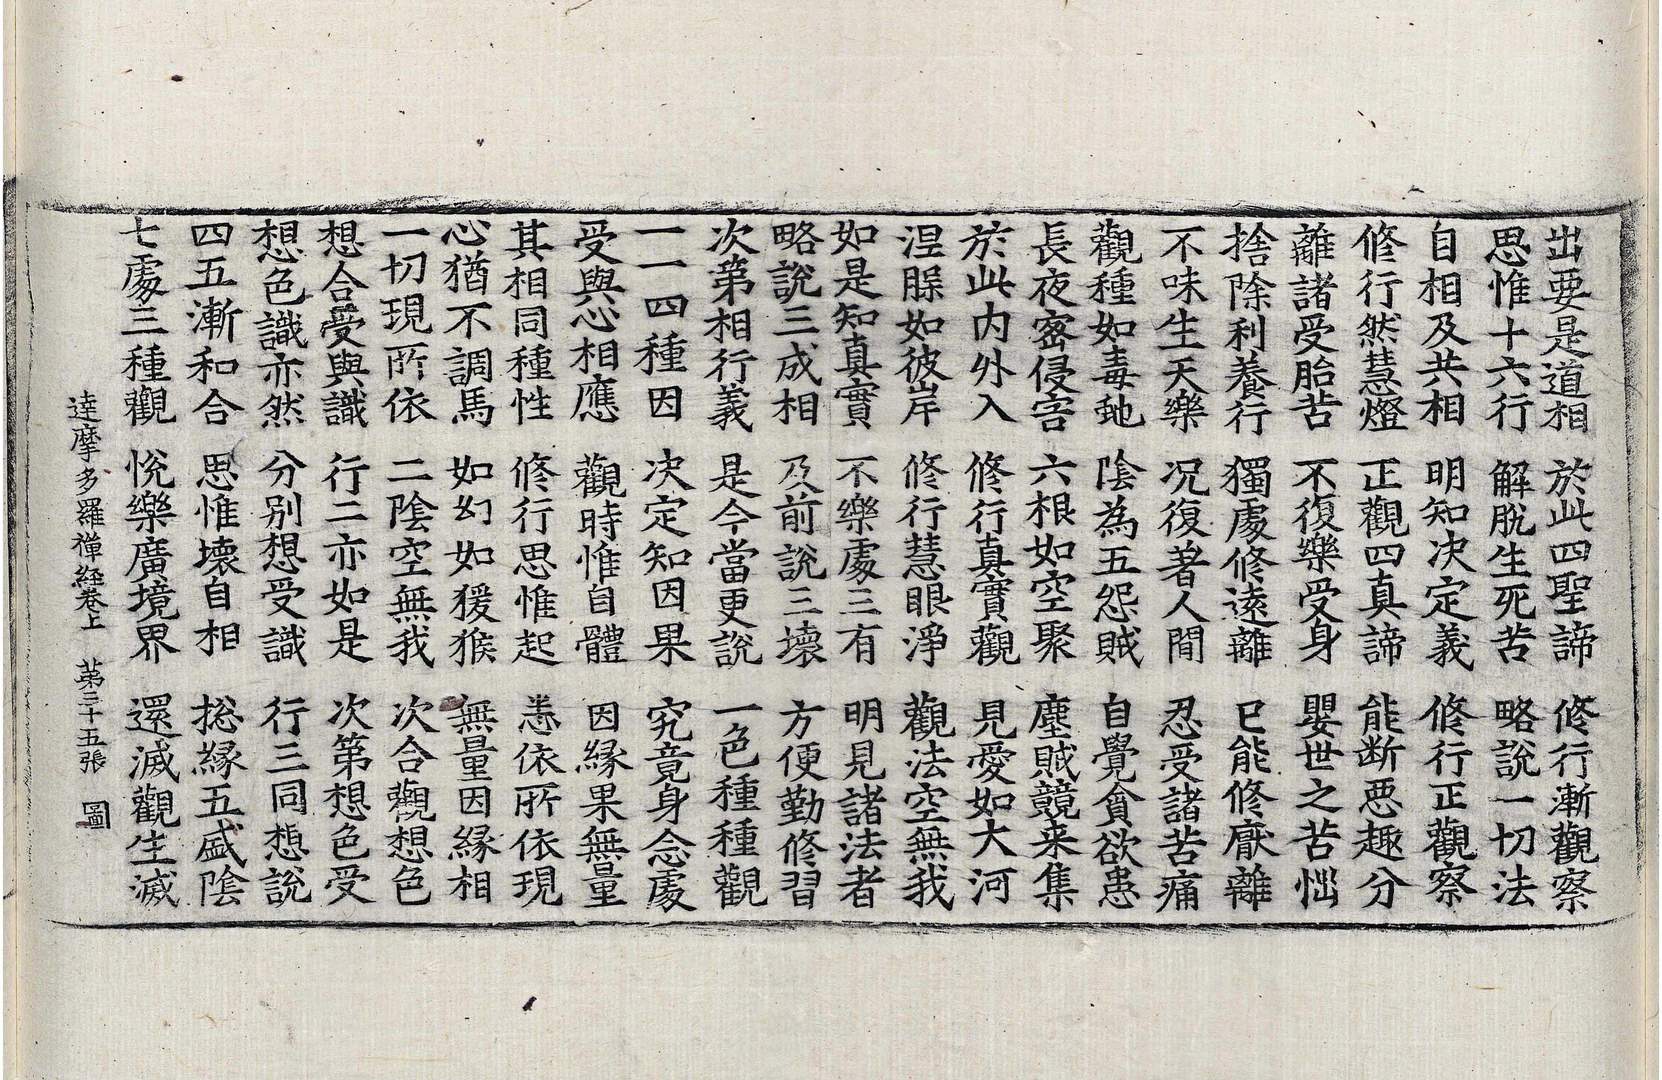 出要是道相 於此四聖諦 修行漸觀察
思惟十六行 解脫生死苦 略說一切法
自相及共相 明知决定義 修行正觀察
修行然慧燈 正觀四真諦 能断惡趣分
離諸受胎苦 不復樂受身 嬰世之苦惱
捨除利養行 獨處修遠離 已能修厭離
不味生天樂 况復著人間 忍受諸苦痛
觀種如毒虵 陰為五怨賊 自覺貪欲患
長夜密侵害 六根如空聚 塵賊競来集
於此内外入 修行真實觀 見愛如大河
涅槃如彼岸 修行慧眼淨 觀法空無我
如是知真實 不樂處三有 明見諸法者
略說三成相 及前說三壞 方便勤修習
次第相行義 是今當更說 一色種種觀
一一四種因 决定知因果 究竟身念處
受與心相應 觀時惟自體 因緣果無量
其相同種性 修行思惟起 恚依所依現
心猶不調馬 如幻如猨猴 無量因緣相
一切現所依 二陰空無我 次合觀想色
想合受與識 行二亦如是 次第想色受
想色識亦然 分別想受識 行三同想說
四五漸和合 思惟壞自相 捴緣五盛陰
七處三種觀 悅樂廣境界 還滅觀生滅
達摩多羅禅経卷上 第三十五張 圖